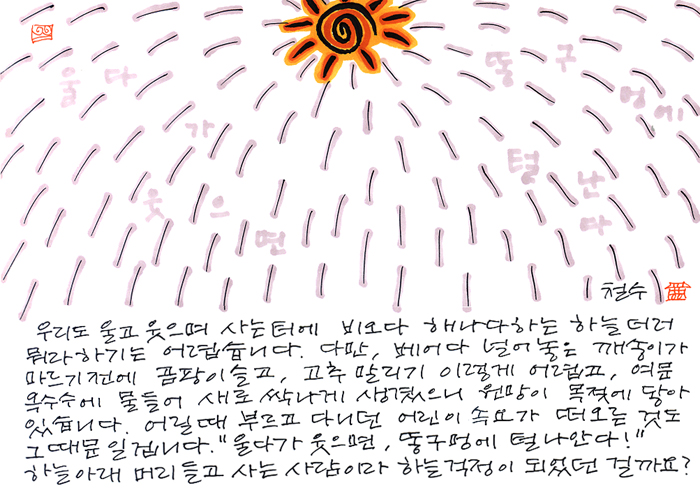 울다
가
웃으
면
똥구
멍에
털난
다
철수
우리도 울고 웃으며 사는터에 비오다 해나다하는 하늘더러
뭐라하기는 어렵습니다. 다만, 베어다 널어놓은 깨송이가
마르기전에 곰팡이슬고, 고추 말리기 이렇게 어렵고, 여문
옥수수에 물들어 새로 싹나게 생겼으니 원망이 목젖에 닿아
있습니다. 어릴때 부르고 다니던 어린이 속요가 떠오른 것도
그때문일겁니다. "울다가 웃으면, 똥구멍에 털나안다!"
하늘아래 머리들고 사는 사람이라 하늘걱정이 되었던 걸까요?